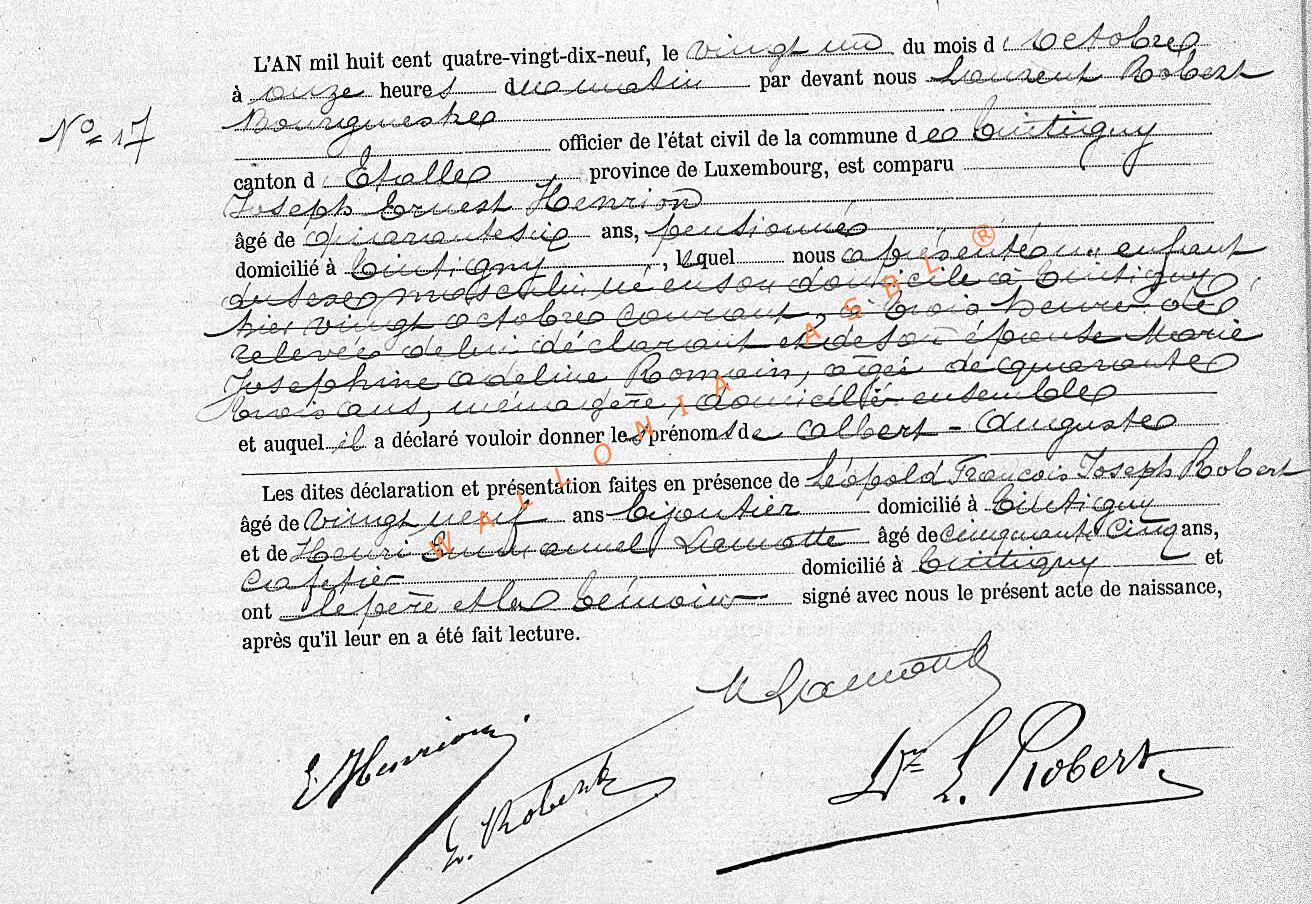 L'AN mil huit cent quatre-vingt-dix-neuf, le vingt un du mois d'octobre,
à onze heures du matin par devant nous Laurent Robert
Bourgmestre
N° 17
officier de l'état civil de la commune de Tintigny
canton d'Etalle province de Luxembourg, est comparu
Joseph Ernest Henrion
âgé de quarante six ans, pensionné
domicilié à Tintigny, lequel nous a présenté un enfant
du sexe masculin né en son domicile à Tintigny
hier vingt octobre courant, à trois heures de
relevée de lui déclarant et de son épouse Marie
Josephine Adeline Romain, âgée de quarante
trois ans, ménagère, domiciliés ensemble
et auquel il a déclaré vouloir donner les prénoms de Albert - Auguste
Les dites déclaration et présentation faites en présence de Léopold François Joseph Robert
âgé de vingt neuf ans bijoutier domicilié à Tintigny
et de Henri Emmanuel Lamotte âgé de cinquante cinq ans,
cafetier domicilié à Tintigny et
ont le père et les témoins signé avec nous le présent acte de naissance,
après qu'il leur en a été fait lecture.
WALLONIA ASBL ®
H Lamotte
E Henrion
L. Robert
Dr L. Robert